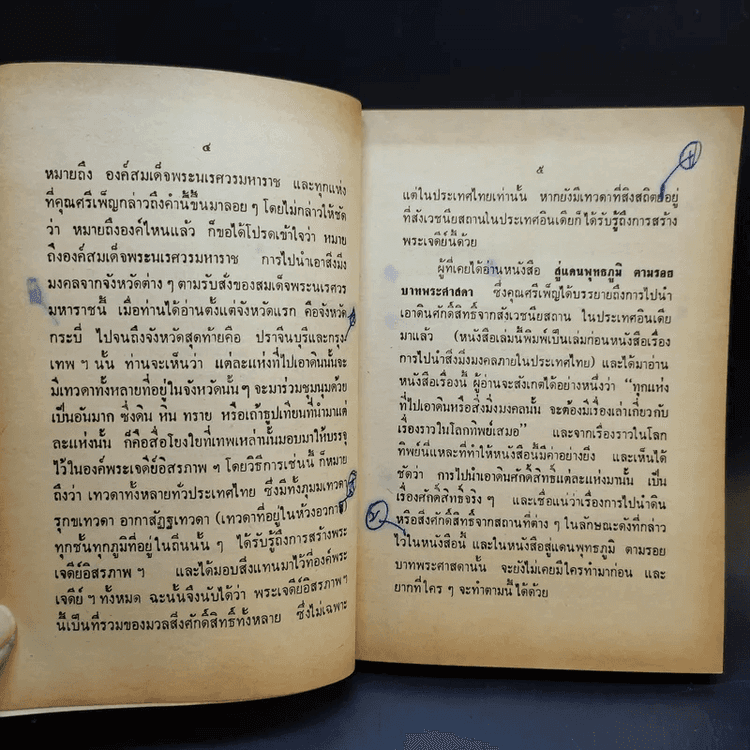 ๔
หมายถึง องค์สมเด็จพระนเรศวรมหาราช และทุกแห่ง
ที่คุณศรีเพ็ญกล่าวถึงคำนี้ขึ้นมาลอย ๆ โดยไม่กล่าวให้ชัด
ว่า หมายถึงองค์ไหนแล้ว ก็ขอได้โปรดเข้าใจว่า หมาย
ถึงองค์สมเด็จพระนเรศวรมหาราช การไปนำเอาสิ่งมิ่ง
มงคลจากจังหวัดต่าง ๆ ตามรับสั่งของสมเด็จพระนเรศวร
มหาราชนี้ เมื่อท่านได้อ่านตั้งแต่จังหวัดแรก คือจังหวัด
กระบี่ ไปจนถึงจังหวัดสุดท้ายคือ ปราจีนบุรีและกรุง
เทพ ฯ นั้น ท่านจะเห็นว่า แต่ละแห่งที่ไปเอาดินนั้นจะ
มีเทวดาทั้งหลายที่อยู่ในจังหวัดนั้น ๆ จะมาร่วมชุมนุมด้วย
เป็นอันมาก ซึ่งดิน หิน ทราย หรือเถ้าธูปเทียนที่นำมาแต่
ละแห่งนั้น ก็คือสื่อโยงใยที่เทพเหล่านั้นมอบมาให้บรรจุ
ไว้ในองค์พระเจดีย์อิสรภาพ ฯ โดยวิธีการเช่นนี้ ก็หมาย
ถึงว่า เทวดาทั้งหลายทั่วประเทศไทย ซึ่งมีทั้งภุมมเทวดา
รุกขเทวดา อากาสัฏฐเทวดา (เทวดาที่อยู่ในห้วงอวกาศ)
ทุกชั้นทุกภูมิที่อยู่ในถิ่นนั้น ๆ ได้รับรู้ถึงการสร้างพระ
เจดีย์อิสรภาพ ฯ และได้มอบสิ่งแทนมาไว้ที่องค์พระ
เจดีย์ ฯ ทั้งหมด ฉะนั้นจึงนับได้ว่า พระเจดีย์อิสรภาพ ฯ
นี้เป็นที่รวมของมวลสิ่งศักดิ์สิทธิ์ทั้งหลาย ซึ่งไม่เฉพาะ
๕
แต่ในประเทศไทยเท่านั้น หากยังมีเทวดาที่สิงสถิตอยู่
ที่สังเวชนียสถานในประเทศอินเดียก็ได้รับรู้ถึงการสร้าง
พระเจดีย์นี้ด้วย
ผู้ที่เคยได้อ่านหนังสือ สู่แดนพุทธภูมิ ตามรอย
บาทพระศาสดา ซึ่งคุณศรีเพ็ญได้บรรยายถึงการไปนำ
เอาดินศักดิ์สิทธิ์จากสังเวชนียสถาน ในประเทศอินเดีย
มาแล้ว (หนังสือเล่มนี้พิมพ์เป็นเล่มก่อนหนังสือเรื่อง
การไปนำสิ่งมิ่งมงคลภายในประเทศไทย) และได้มาอ่าน
หนังสือเรื่องนี้ ผู้อ่านจะสังเกตได้อย่างหนึ่งว่า "ทุกแห่ง
ที่ไปเอาดินหรือสิ่งมิ่งมงคลนั้น จะต้องมีเรื่องเล่าเกี่ยวกับ
เรื่องราวในโลกทิพย์เสมอ" และจากเรื่องราวในโลก
ทิพย์นี่แหละที่ทำให้หนังสือนี้มีค่าอย่างยิ่ง และเห็นได้
ชัดว่า การไปนำเอาดินศักดิ์สิทธิ์แต่ละแห่งมานั้น เป็น
เรื่องศักดิ์สิทธิ์จริง ๆ และเชื่อแน่ว่าเรื่องการไปนำดิน
หรือสิ่งศักดิ์สิทธิ์จากสถานที่ต่าง ๆ ในลักษณะดังที่กล่าว
ไว้ในหนังสือนี้ และในหนังสือสู่แดนพุทธภูมิ ตามรอย
บาทพระศาสดานั้น จะยังไม่เคยมีใครทำมาก่อน และ
ยากที่ใคร ๆ จะทำตามนี้ได้ด้วย